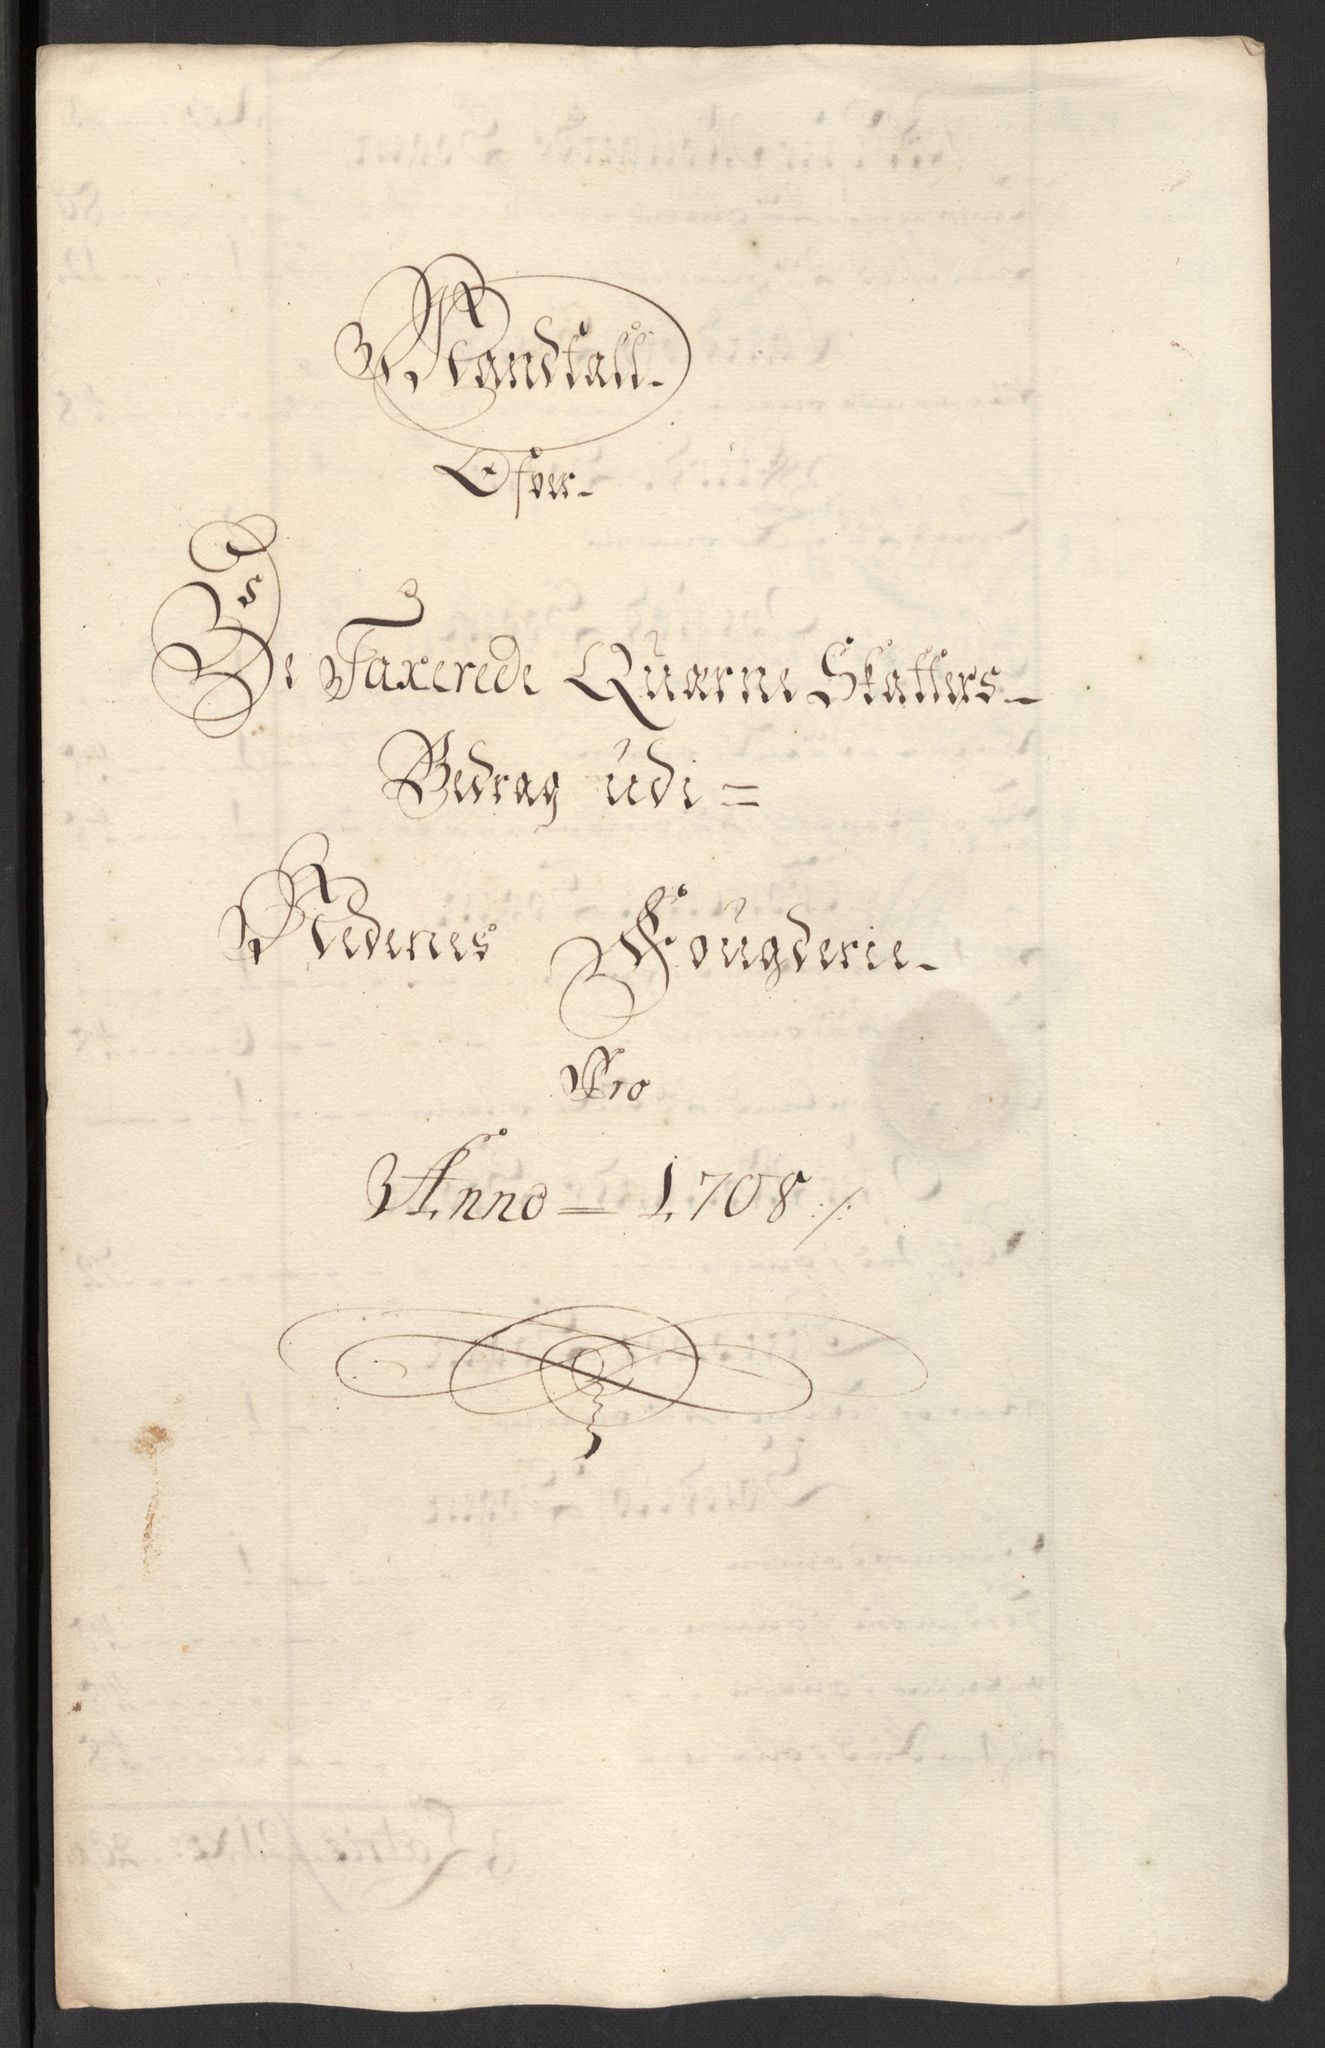 Mandtall
Ofver
De Taxerede Quærne Skatters
Bedrag udi =
Nedenes Fougderie
Pro
Anno = 1708 ./.